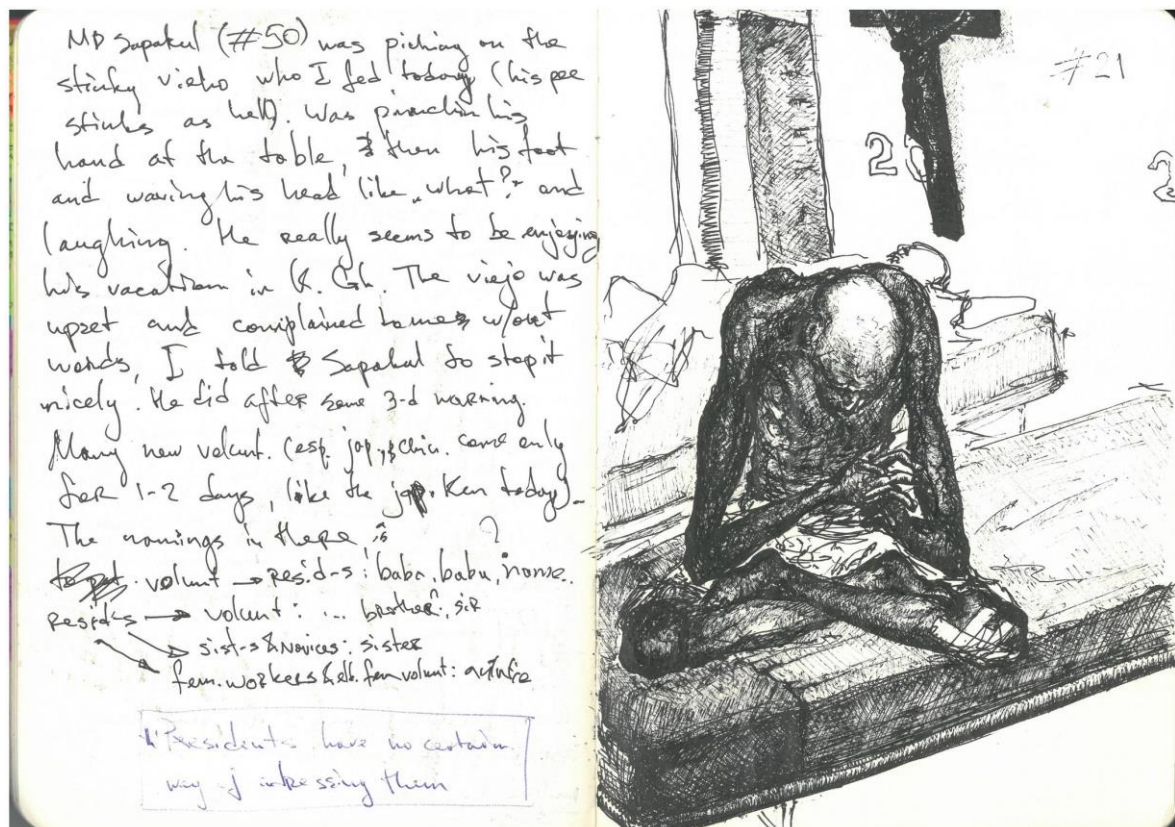 MD Sapakul (#50) was piching on the
stinky vieho who I fed today (his pee
stinks as hell). Was pinchin his
hand at the table, & then his foot
and waving his head like „what?" and
laughing. He really seems to be enjoying
his vacation in K. Gh. The viejo was
upset and complained to me w/out
words, I told Sapakul to stop it
nicely. He did after some 3-d warning.
Many new volunt. (esp. jap. & chin. come only
for 1-2 days, like the jap. Ken today).
The namings in there is ?
volunt → resid-s: baba, babu, name.
Resid-s → volunt: ... brother, sir
sist-s & Novices: sister
fem. workers & eld. fem volunt:
Residents have no certain
way of adressing them
#21
20
2